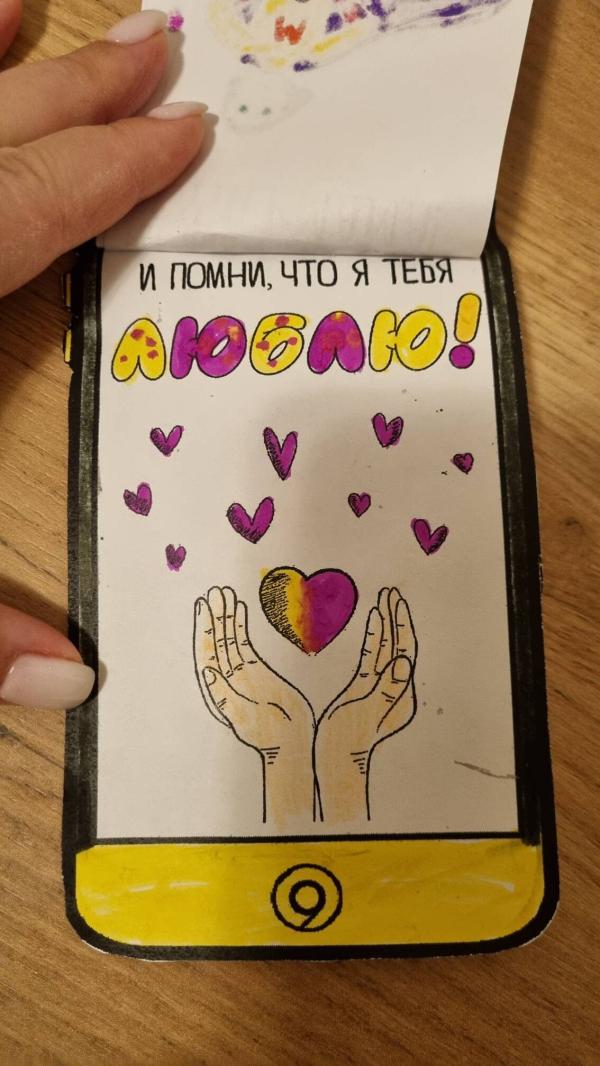 И ПОМНИ, ЧТО Я ТЕБЯ
ЛЮБЛЮ!
9